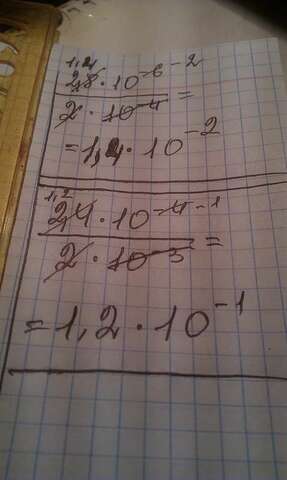 1,4
2,8 · 10⁻⁶ ⁻²
2 · 10⁻⁴ =
= 1,4 · 10⁻²
1,2
2,4 · 10⁻⁴ ⁻¹
2 · 10⁻³ =
= 1,2 · 10⁻¹